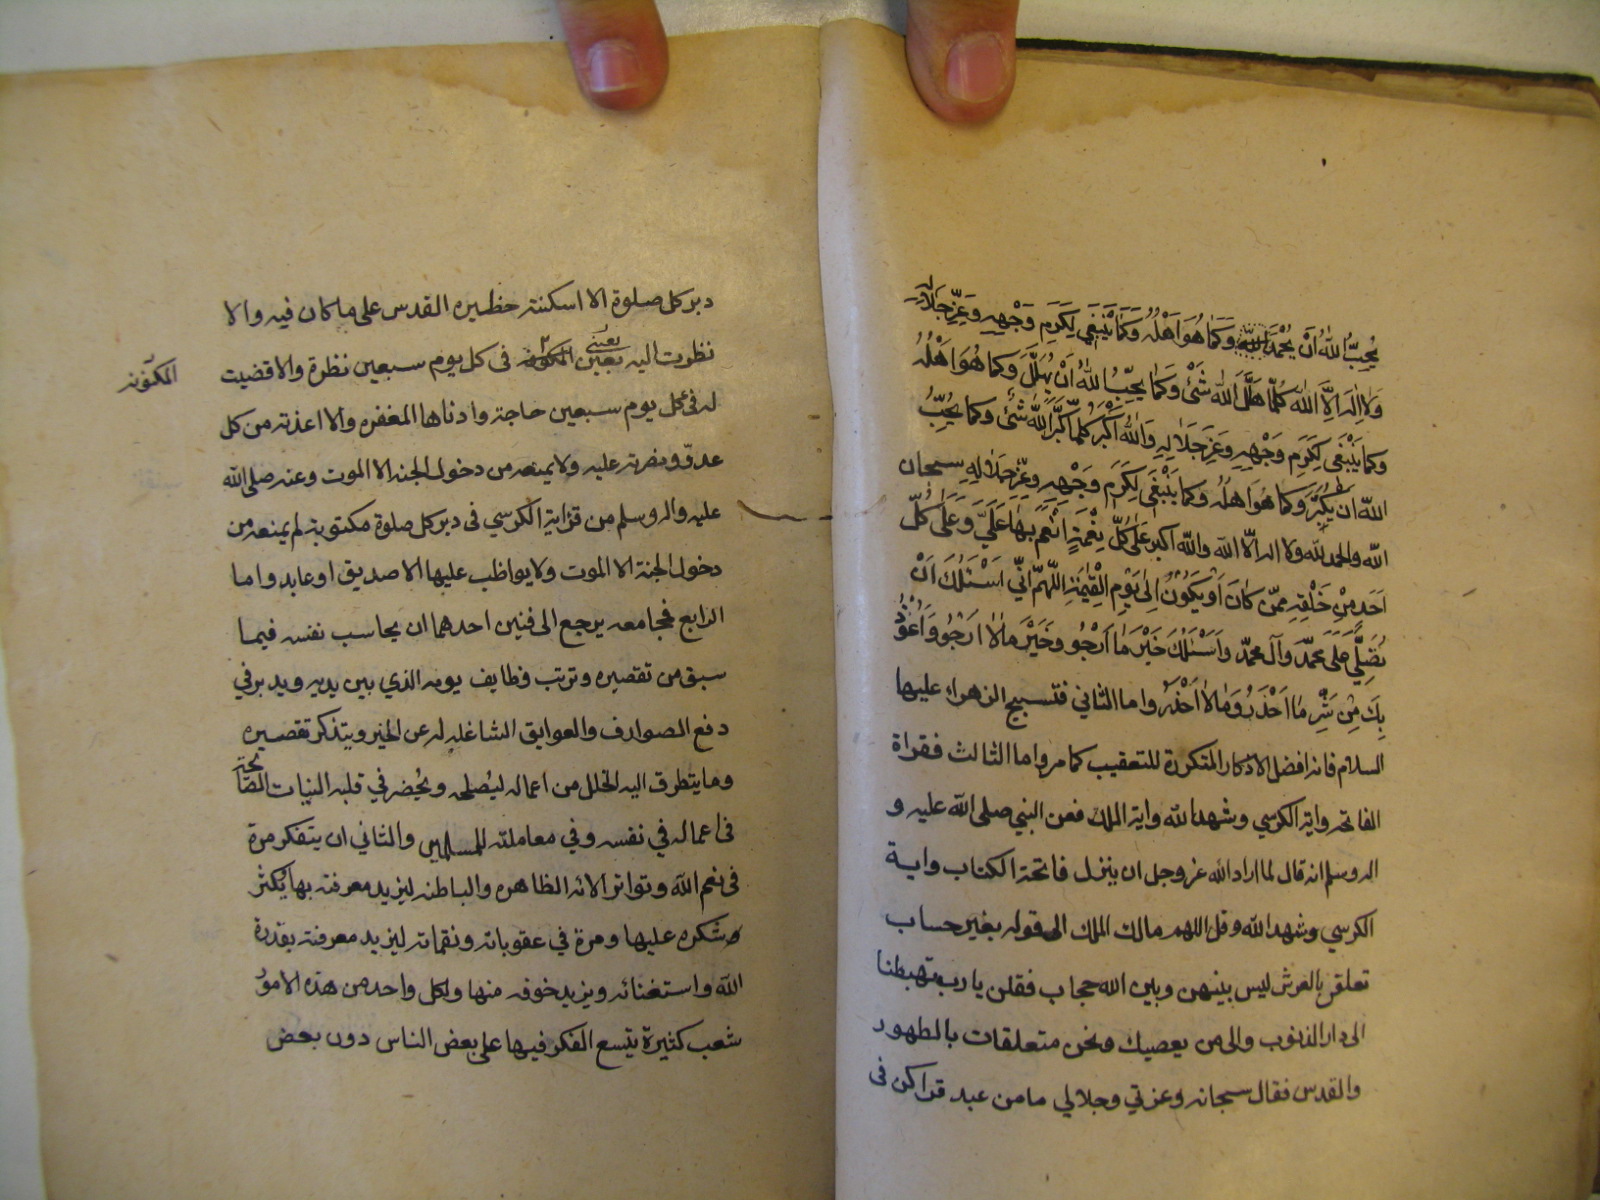 يُحِبُّ اللهُ اَنْ يُحْمَدَ وَكَمٰا هُوَ اَهْلُهُ وَكَمٰا يَنْبَغي لِكَرَمِ وَجْهِهِ وَعِزِّ جَلاٰلِهِ
وَلاٰ اِلٰهَ اِلاَّ اللهُ كُلَّمٰا هَلَّلَ اللهَ شَئٌ وَكَمٰا يُحِبُّ اللهُ اَنْ يُهَلَّلَ وَكما هُوَ اَهْلُهُ
وَكما يَنْبَغي لِكَرَمِ وَجْهِهِ وَعِزِّ جَلاٰلِهِ وَاللهُ اَكْبَرُ كُلَّمٰا كَبَّرَ اللهَ شَئٌ وَكما يُحِبُّ
اللهُ ان يُكَبَّرَ وَكما هُوَ اَهْلُهُ وَكما يَنْبَغي لِكَرَمِ وَجْهِهِ وَعِزِّ جَلاٰلِهِ سبحان
الله والحمد لله ولا اله الاّ الله والله اكبر عَلىٰ كُلِّ نِعْمَةٍ اَنْعَمَ بِهٰا عَلَيَّ وَعَلىٰ كُلِّ
اَحَدٍ مِنْ خَلْقِهِ مِمَّنْ كٰانَ اَوْ يَكُونُ اِلىٰ يَوْمِ الْقِيٰمَةِ اللّهُمَّ اِنّي اَسْئَلُكَ اَنْ
تُصَلِّيَ عَلىٰ محمّد وَآل محمّد وَاَسْئَلُكَ خَيْرَ مٰا اَرْجُو وَخَيْرَ مٰا لاٰ اَرْجُو وَاَعُوذُ
بِكَ مِنْ شَرِّ مٰا اَحْذَرُ وَمٰا لاٰ اَحْذَرُ واما الثاني فتسبيح الزهراء عليها
السلام فانه افضل الاذكار المتكررة للتعقيب كما مر واما الثالث فقراة
الفاتحه واية الكرسي وشهد الله واية الملك فعن النبي صلى الله عليه و
اله وسلم انه قال لما اراد الله عز وجل ان ينزل فاتحة الكتاب واية
الكرسي وشهد الله وقل اللهم مالك الملك الى قوله بغير حساب
تعلقن بالعرش ليس بينهن وبين الله حجاب فقلن يا رب تهبطنا
الى دار الذنوب والى من يعصيك ونحن متعلقات بالطهور
والقدس فقال سبحانه وعزتي وجلالي ما من عبد قراكن في
دبر كل صلوة الا اسكنته حظيره القدس على ما كان فيه والا
نظرت اليه بعيني المكنونه في كل يوم سبعين نظرة والا قضيت
المكنونه
له في كل يوم سبعين حاجة وادناها المغفره والا اعذته من كل
عدوّ ونصرته عليه ولا يمنعه من دخول الجنه الا الموت وعنه صلى الله
عليه واله وسلم من قرا اية الكرسي في دبر كل صلوة مكتوبة لم يمنعه من
دخول الجنة الا الموت ولا يواظب عليها الا صديق او عابد واما
الرابع فمجامعه يرجع الى فنين احدهما ان يحاسب نفسه فيما
سبق من تقصيره وترتب وظايف يومه الذي بين يديه ويدبر في
دفع الصوارف والعوايق الشاغله له عن الخير ويتذكر تقصيره
وما يتطرق اليه الخلل من اعماله ليُصلحه ويُحضر في قلبه النيات الصالحة
في اعماله في نفسه وفي معاملته للمسلمين والثاني ان يتفكر مرة
في نعم الله وتواتر الائه الظاهره والباطنه ليزيد معرفته بها يكثر
شكره عليها ومرة في عقوباته ونقماته ليزيد معرفته بقدرة
الله واستغنائه ويزيد خوفه منها ولكل واحد من هذه الامور
شعب كثيرة يتسع الفكر فيها على بعض الناس دون بعض